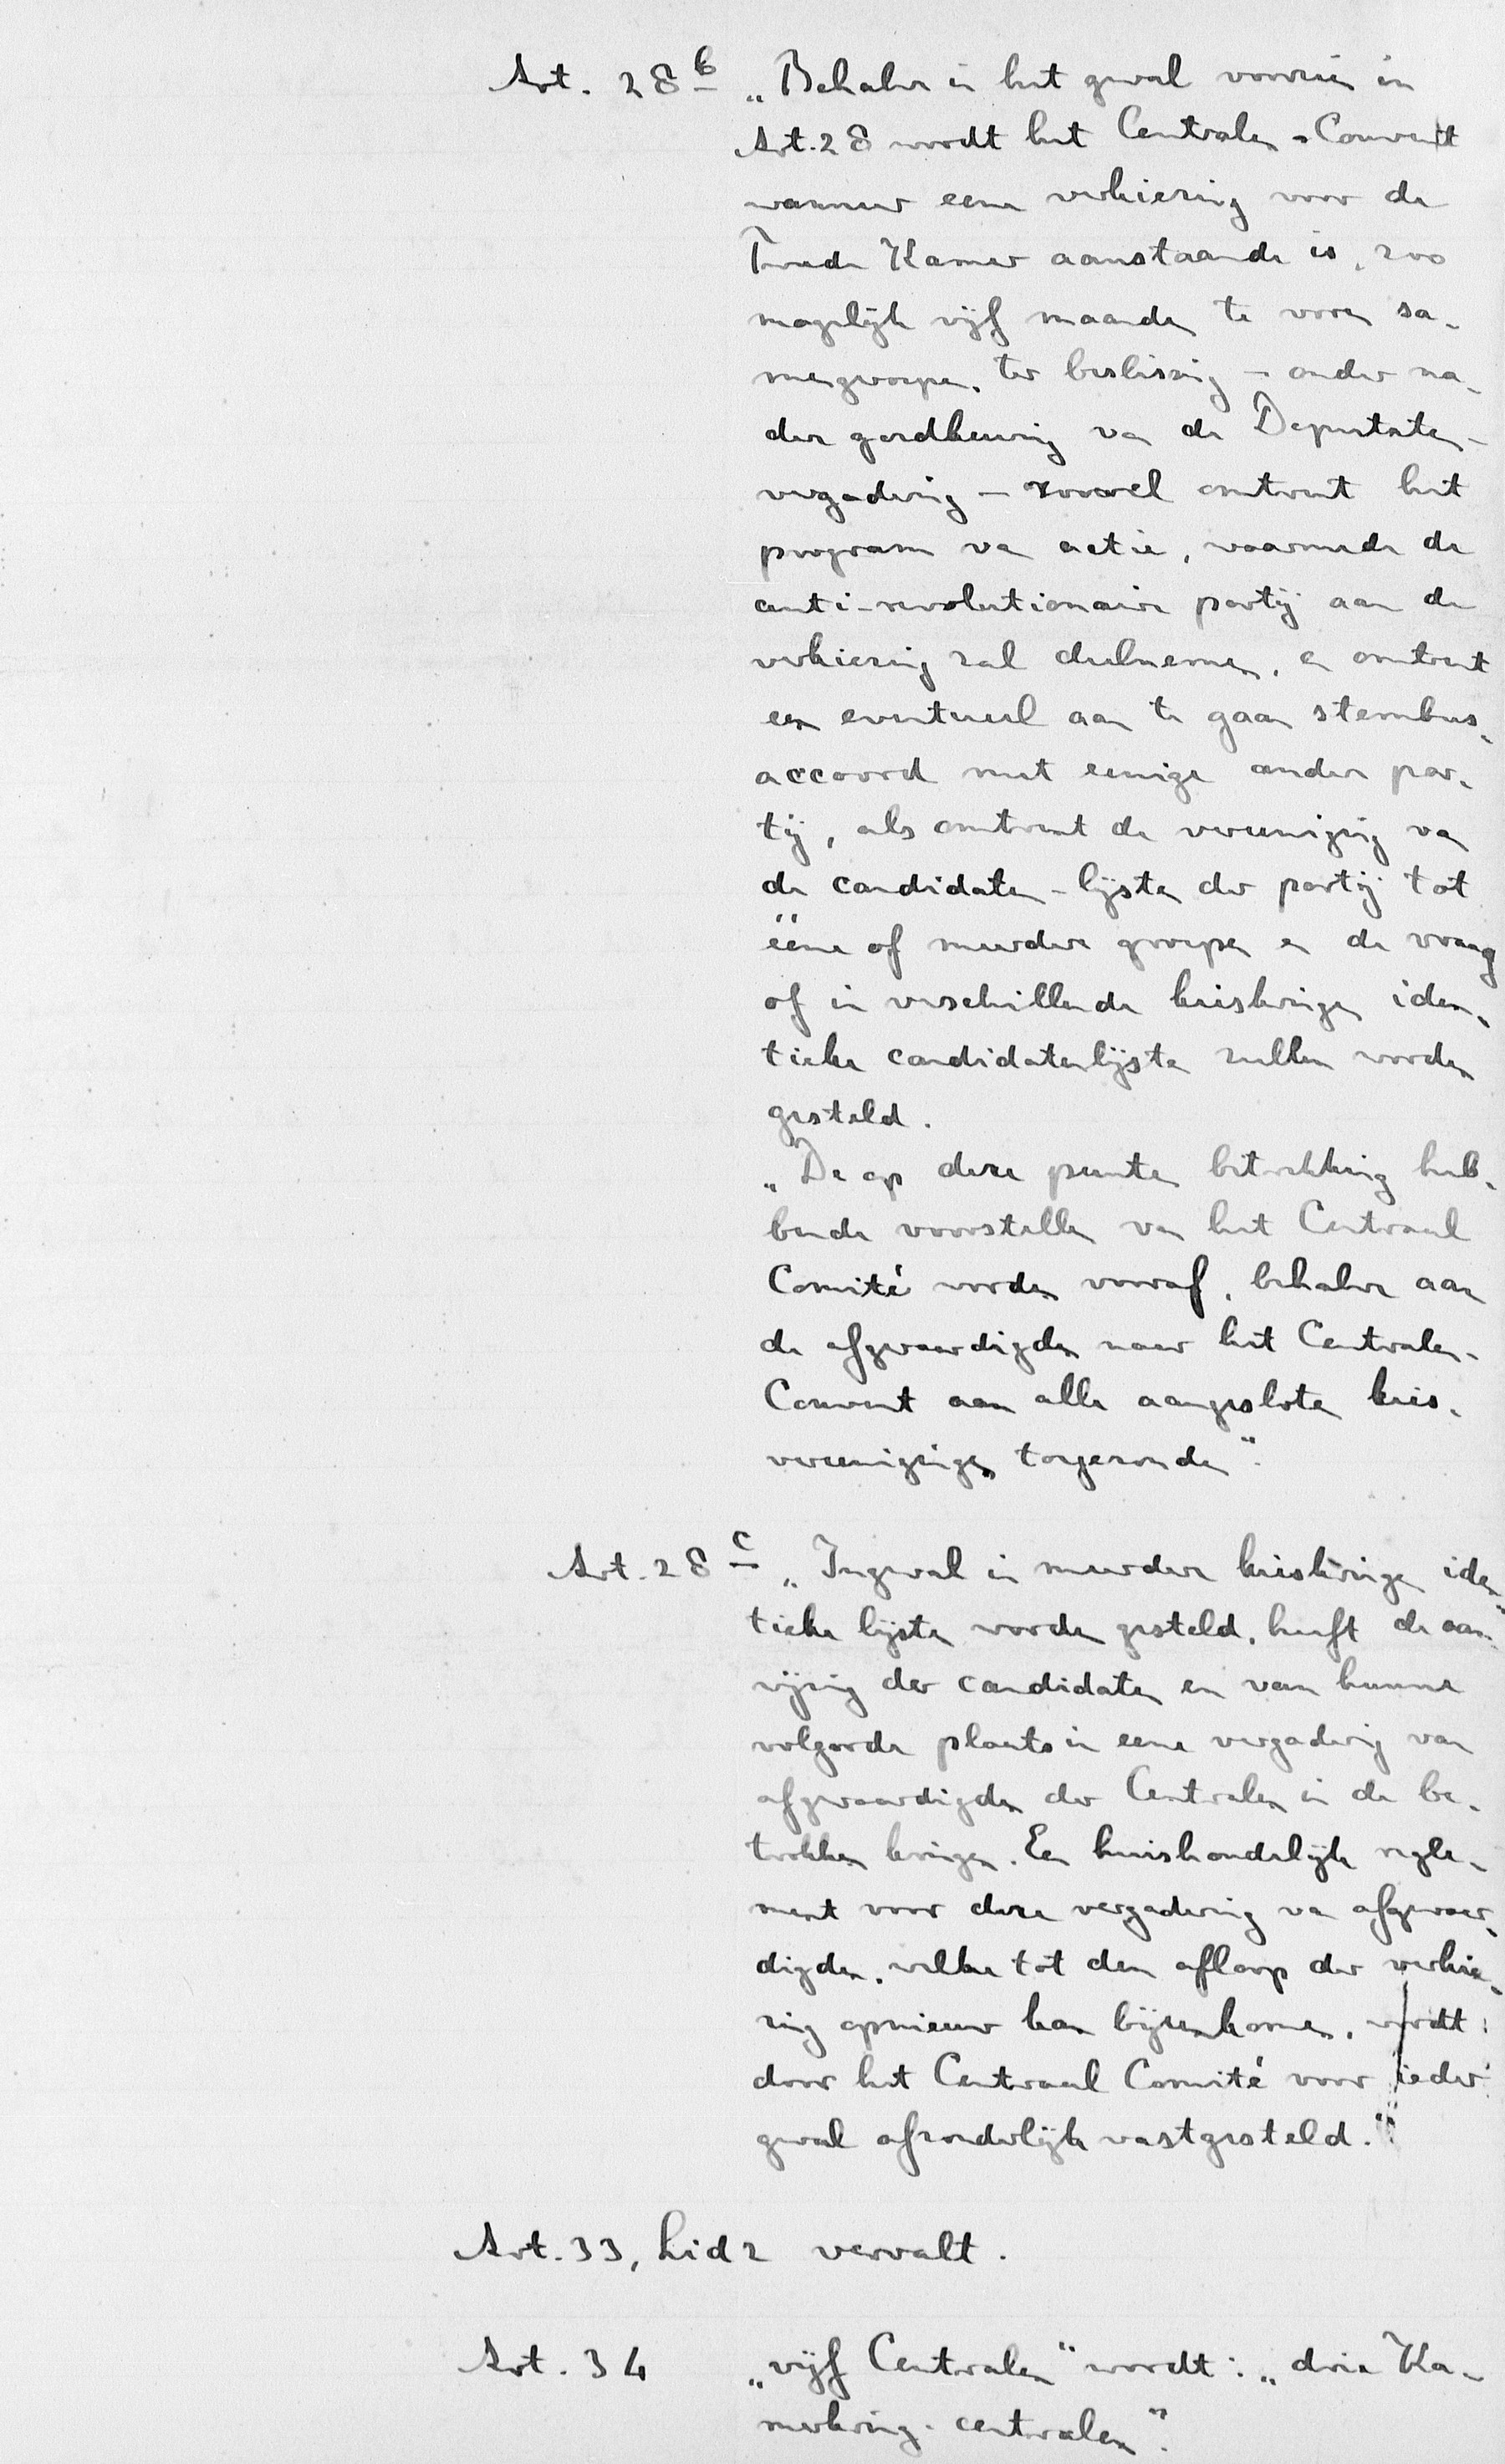 Art. 28b „Behalve in het geval voorzien in
Art. 28 wordt het Centralen-Convent
wanneer eene verkiezing voor de
Tweede Kamer aanstaande is, zoo
mogelijk vijf maanden te voren sa-
mengeroepen, ter beslissing – onder na-
dere goedkeuring van de Deputaten-
vergadering – zoowel omtrent het
program van actie, waarmede de
anti-revolutionaire partij aan de
verkiezing zal deelnemen, en omtrent
een eventueel aan te gaan stembus-
accoord met eenige andere par-
tij, als omtrent de vereeniging van
de candidaten-lijsten der partij tot
ééne of meerdere groepen en de vraag
of in verschillende kieskringen iden-
tieke candidatenlijsten zullen worden
gesteld.
„De op deze punten betrekking heb-
bende voorstellen van het Centraal
Comité worden vooraf, behalve aan
de afgevaardigden naar het Centralen-
Convent aan alle aangesloten kies-
vereenigingen toegezonden".
Art. 28c „Ingeval in meerdere kieskringen iden-
tieke lijsten worden gesteld, heeft de aan-
wijzing der candidaten en van hunne
volgorde plaats in eene vergadering van
afgevaardigden der Centralen in de be-
trokken kringen. Een huishoudelijk regle-
ment voor deze vergadering van afgevaar-
digden, welke tot den afloop der verkie-
zing opnieuw kan bijeenkomen, wordt
door het Centraal Comité voor ieder
geval afzonderlijk vastgesteld."
Art. 33, lid 2 vervalt.
Art. 34 „vijf Centralen" wordt: „drie Ka-
merkring-centralen".